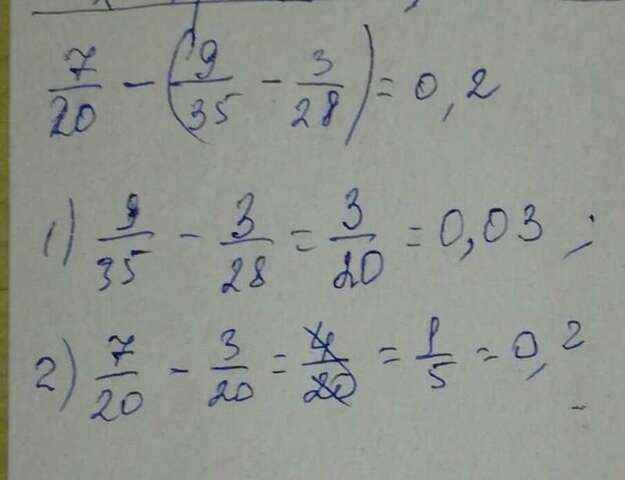 7/20 - (9/35 - 3/28) = 0,2
1) 9/35 - 3/28 = 3/20 = 0,03 ;
2) 7/20 - 3/20 = 4/20 = 1/5 = 0,2